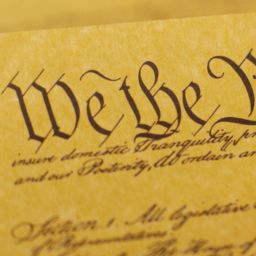 We the
insure domestic Tranquility, pr
and our Posterity, do ordain an
Section. 1. All legislative
of Representatives.
The House of